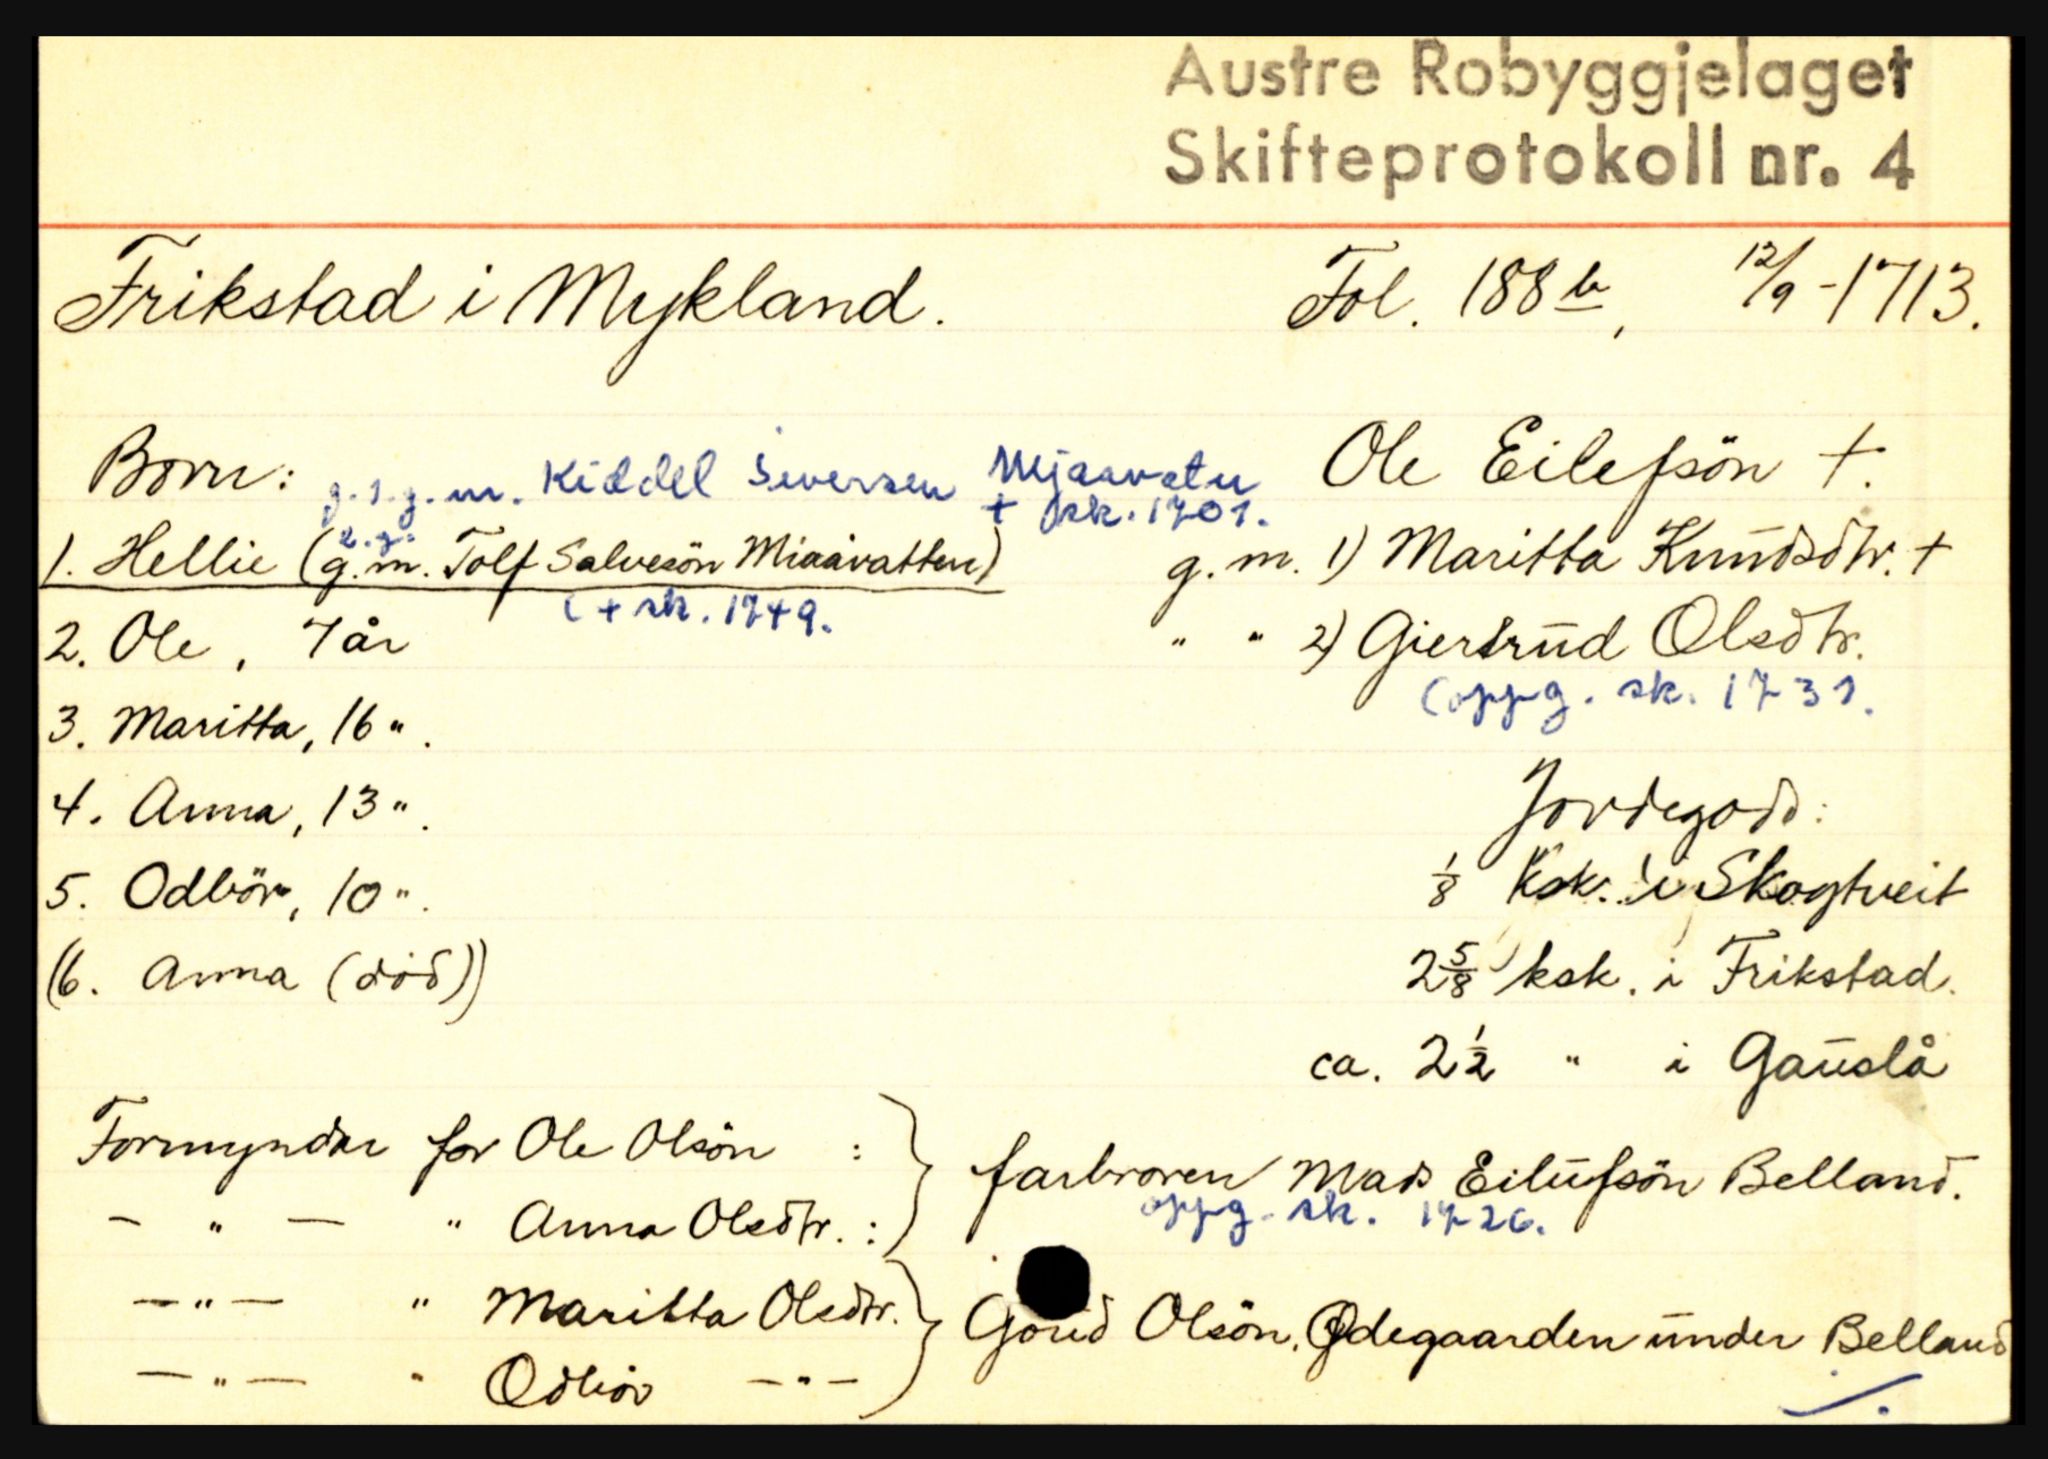 Austre Robyggjelaget
Skifteprotokoll nr. 4
Frikstad i Mykland. Fol. 188 b, 12/9 - 1713.
Born: g. 1. g. m. Kiddel Siversen Mjaavatn Ole Eilefsön †.
† sk. 1701.
2. g.
1. Hellie (g. m. Tolf Salvesön Miaavatten) g. m. 1) Maritta Knudsdtr. †
(† sk. 1749.
2. Ole, 7 år " " 2) Giertrud Olsdtr.
(oppg. sk. 1731.
3. Maritta, 16 ".
4. Anna, 13 ". Jordegods:
5. Odbör, 10 ". 1/8 Ksk. i Skogtveit
(6. Anna (död)) 2 5/8 ksk. i Frikstad.
ca. 2 1/2 " i Gauslå
Formyndar for Ole Olsön : } farbroren Mads Eilufsön Belland.
— " — " Anna Olsdtr. : oppg. sk. 1726.
— " — " Maritta Olsdtr. } Olsön, Ødegaarden under Belland
— " — " Odbör — " —